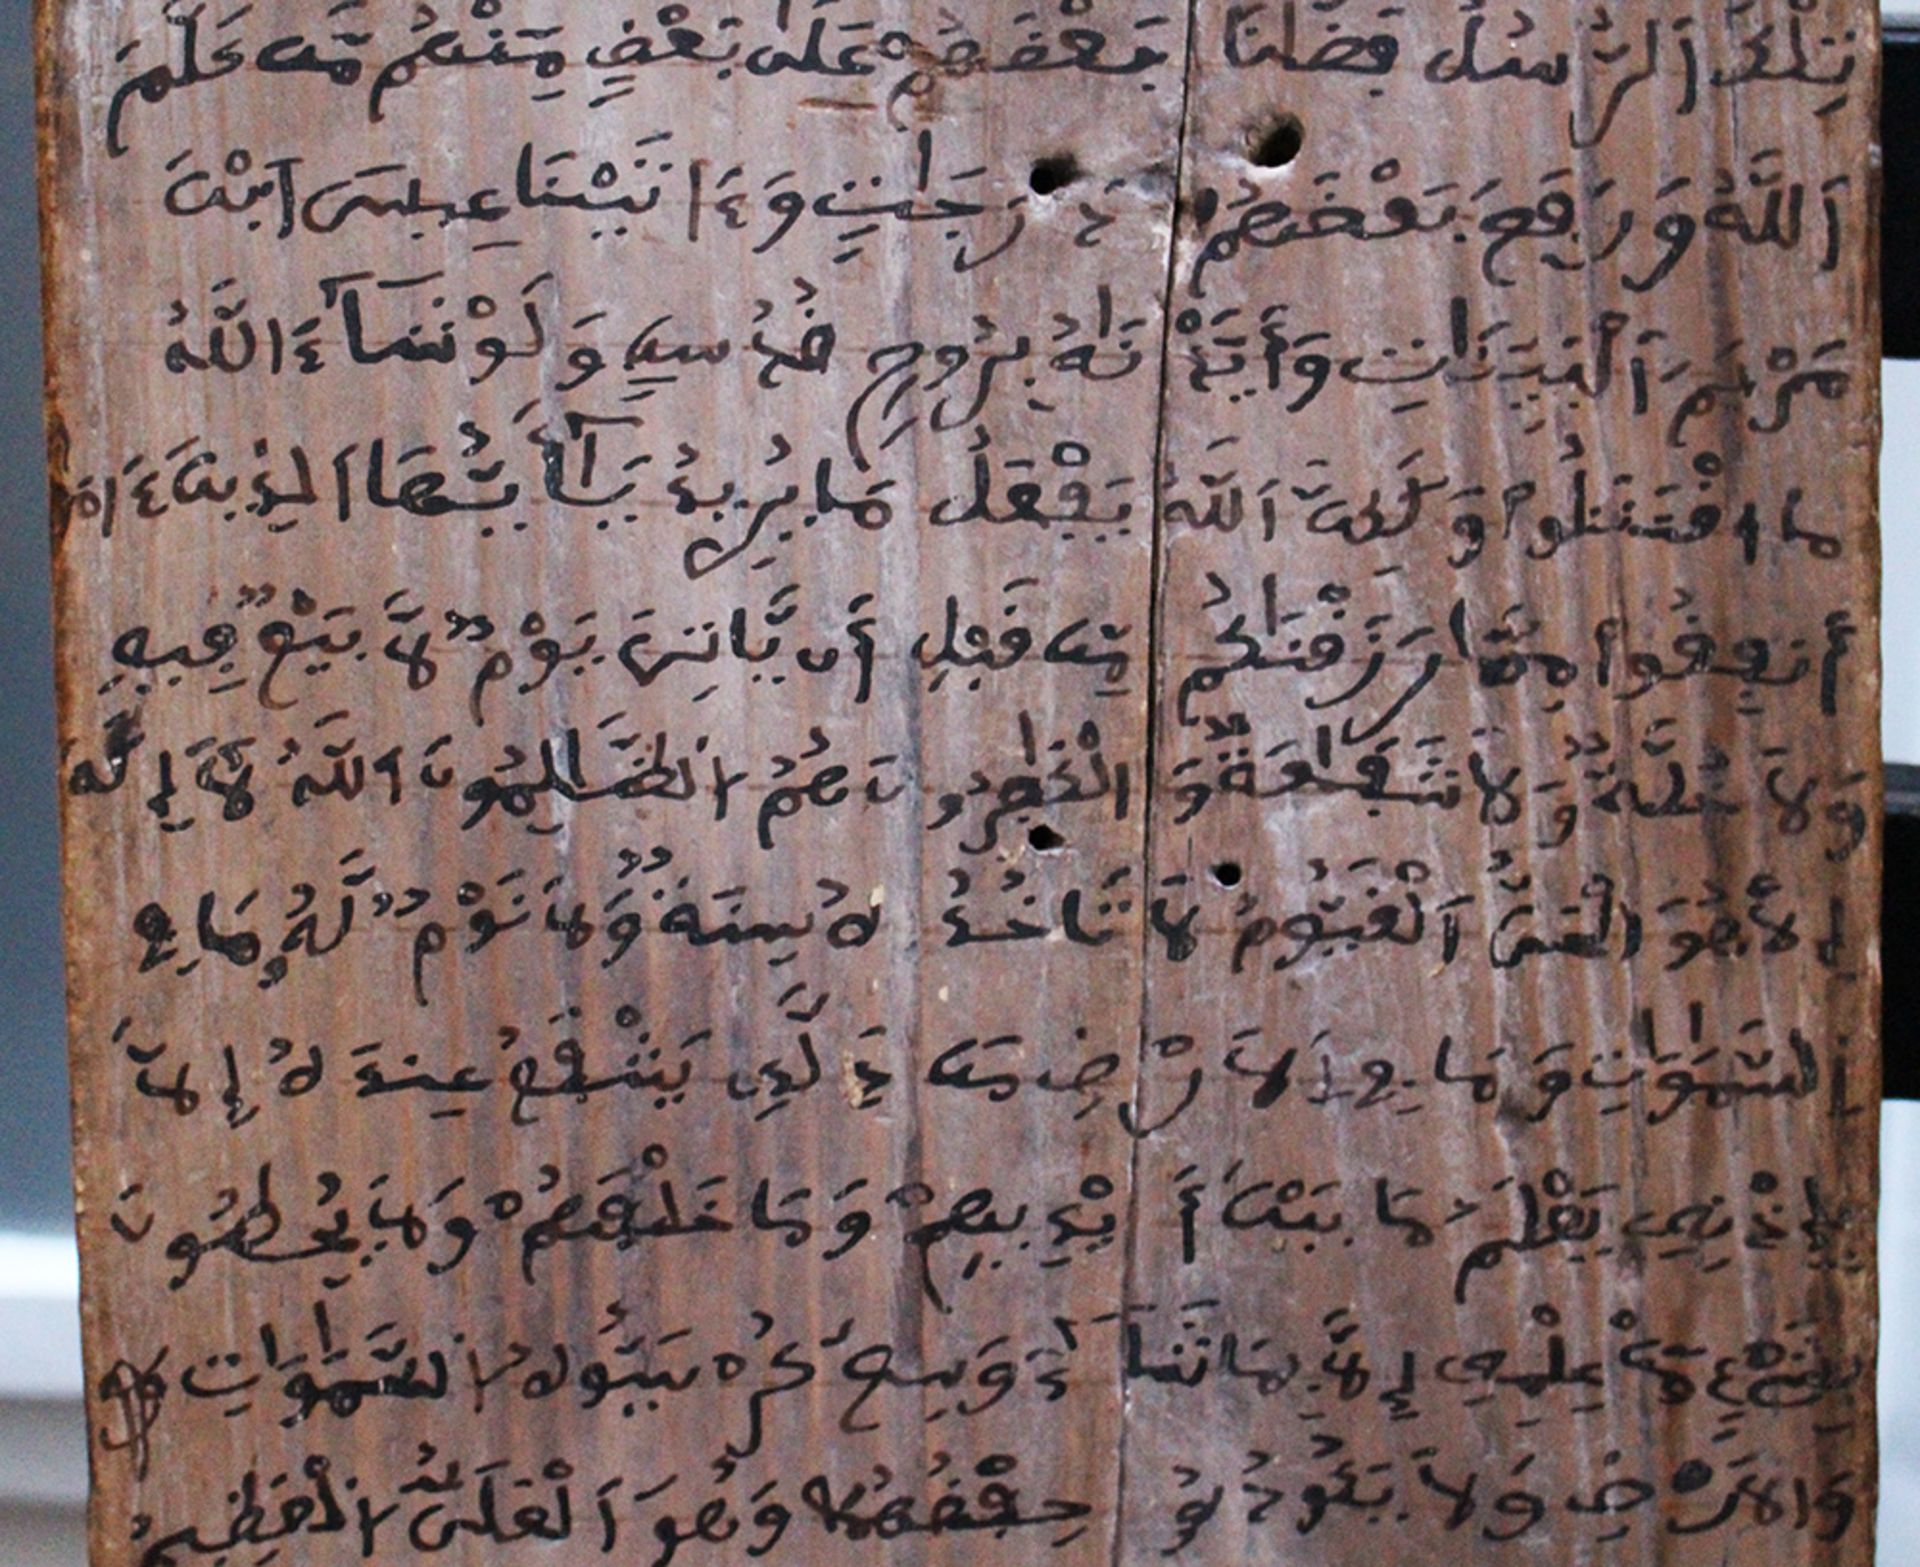 تِلْكَ اَ۬لرُّسُلُ فَضَّلْنَا بَعْضَهُمْ عَلَىٰ بَعْضٖ مِّنْهُم مَّن كَلَّمَ
اَ۬للَّهُ وَرَفَعَ بَعْضَهُمْ دَرَجَٰتٖ وَءَاتَيْنَا عِيسَى اَ۪بْنَ
مَرْيَمَ اَ۬لْبَيِّنَٰتِ وَأَيَّدْنَٰهُ بِرُوحِ اِ۬لْقُدُسِ وَلَوْ شَآءَ اَ۬للَّهُ
مَا اَ۪قْتَتَلُوا۟ وَلَٰكِنَّ اَ۬للَّهَ يَفْعَلُ مَا يُرِيدُ يَٰٓأَيُّهَا اَ۬لذِينَ ءَامَ
أَنفِقُوا۟ مِمَّا رَزَقْنَٰكُم مِّن قَبْلِ أَنْ يَّاتِيَ يَوْمٞ لَّا بَيْعٞ فِيهِ
وَلَا خُلَّةٞ وَلَا شَفَٰعَةٞ وَالْكَٰفِرُونَ هُمُ اُ۬لظَّٰلِمُونَ اَ۬للَّهُ لَآ إِلَٰهَ
إِلَّا هُوَ اَ۬لْحَيُّ اُ۬لْقَيُّومُ لَا تَاخُذُهُ سِنَةٞ وَلَا نَوْمٞ لَّهُ مَا فِي
اِ۬لسَّمَٰوَٰتِ وَمَا فِي اِ۬لَارْضِ مَن ذَا اَ۬لذِي يَشْفَعُ عِندَهُ إِلَّا
بِإِذْنِهِ يَعْلَمُ مَا بَيْنَ أَيْدِيهِمْ وَمَا خَلْفَهُمْ وَلَا يُحِيطُونَ
بِشَيْءٖ مِّنْ عِلْمِهِ إِلَّا بِمَا شَآءَ وَسِعَ كُرْسِيُّهُ اُ۬لسَّمَٰوَٰتِ
وَالَارْضَ وَلَا يَـُٔودُهُ حِفْظُهُمَا وَهُوَ اَ۬لْعَلِيُّ اُ۬لْعَظِيمُ